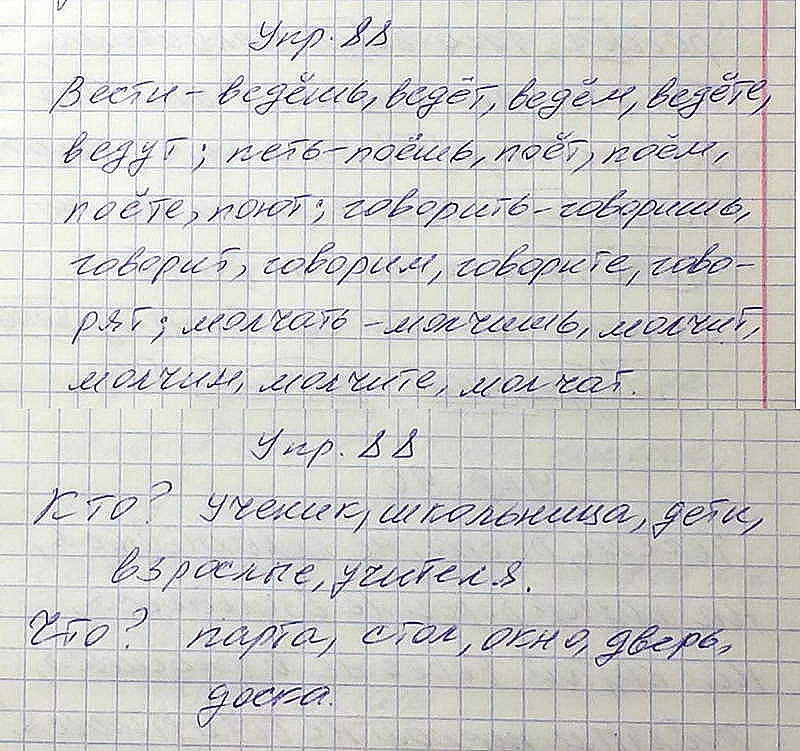 Упр. 88
Вести - ведёшь, ведёт, ведём, ведёте,
ведут; петь - поёшь, поёт, поём,
поёте, поют; говорить - говоришь,
говорит, говорим, говорите, гово-
рят; молчать - молчишь, молчит,
молчим, молчите, молчат.
Упр. 88
Кто? ученик, школьница, дети,
взрослые, учителя.
Что? парта, стол, окно, дверь,
доска.